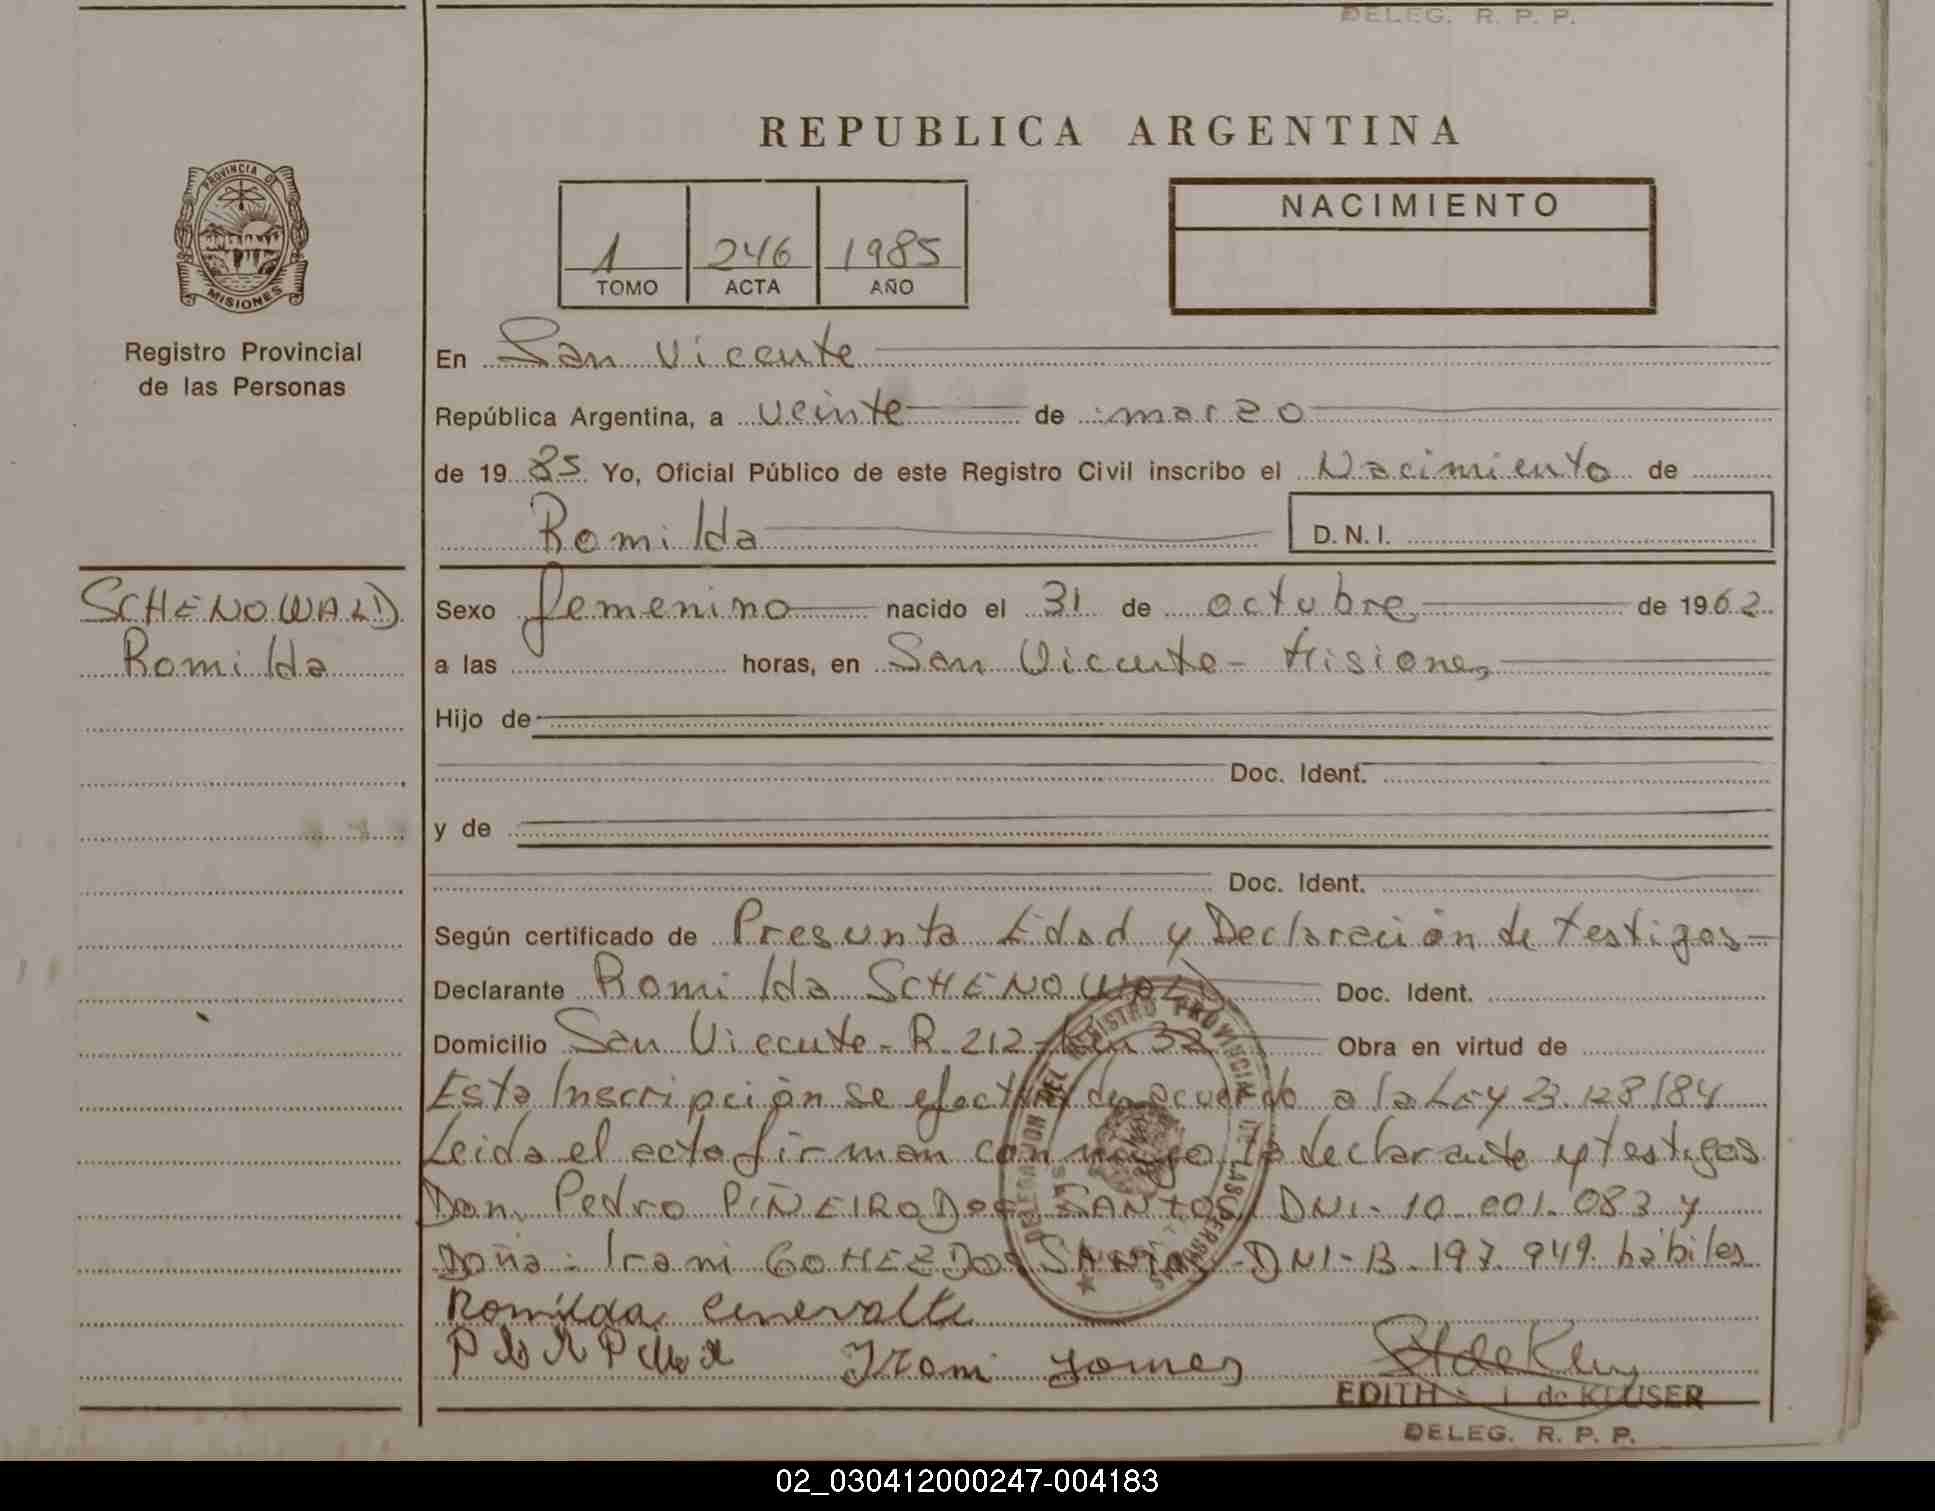 DELEG. R. P. P.
REPUBLICA ARGENTINA
PROVINCIA DE
MISIONES
Registro Provincial
de las Personas
1 246 1985
TOMO ACTA AÑO
NACIMIENTO
En San Vicente
República Argentina, a veinte de marzo
de 1985 Yo, Oficial Público de este Registro Civil inscribo el Nacimiento de
Romilda D. N. I.
SCHENOWALD
Romilda
Sexo femenino nacido el 31 de octubre de 1962
a las horas, en San Vicente - Misiones
Hijo de
Doc. Ident.
y de
Doc. Ident.
Según certificado de Presunta Edad y Declaración de testigos
Declarante Romilda SCHENOWALD Doc. Ident.
Domicilio San Vicente - R. 212 - Km 32 Obra en virtud de
Esta Inscripción se efectúa de acuerdo a la Ley 23.128/84
Leida el acta firman conmigo la declarante y testigos
Don. Pedro PIÑEIRO DOS SANTOS DNI - 10.001.083 y
Doña: Irani GOMEZ DOS SANTOS - DNI - 13.197.949. hábiles
DELEGACION DEL REGISTRO PROVINCIAL DE LAS PERSONAS
Romilda
Irani Gomes
EDITH de KLUSER
DELEG. R. P. P.
02_030412000247-004183